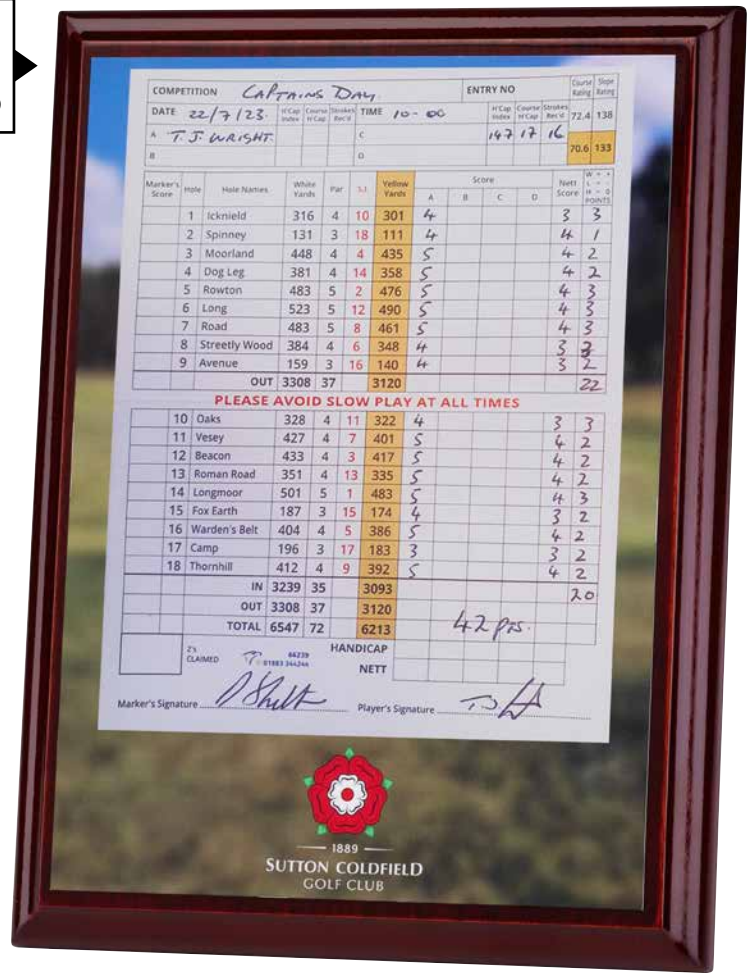 COMPETITION CAPTAINS DAY ENTRY NO Course Rating Slope Rating
DATE 22/7/23. H'Cap Index Course H'Cap Strokes Rec'd TIME 10-00 H'Cap Index Course H'Cap Strokes Rec'd 72.4 138
A T. J. WRIGHT. C 147 17 16 70.6 133
B D
Marker's Score Hole Hole Names White Yards Par S.I Yellow Yards Score A B C D Nett Score W = + L = - H = 0 POINTS
1 Icknield 316 4 10 301 4 3 3
2 Spinney 131 3 18 111 4 4 1
3 Moorland 448 4 4 435 5 4 2
4 Dog Leg 381 4 14 358 5 4 2
5 Rowton 483 5 2 476 5 4 3
6 Long 523 5 12 490 5 4 3
7 Road 483 5 8 461 5 4 3
8 Streetly Wood 384 4 6 348 4 3 3
9 Avenue 159 3 16 140 4 3 2
OUT 3308 37 3120 22
PLEASE AVOID SLOW PLAY AT ALL TIMES
10 Oaks 328 4 11 322 4 3 3
11 Vesey 427 4 7 401 5 4 2
12 Beacon 433 4 3 417 5 4 2
13 Roman Road 351 4 13 335 5 4 2
14 Longmoor 501 5 1 483 5 4 3
15 Fox Earth 187 3 15 174 4 3 2
16 Warden's Belt 404 4 5 386 5 4 2
17 Camp 196 3 17 183 3 3 2
18 Thornhill 412 4 9 392 5 4 2
IN 3239 35 3093 20
OUT 3308 37 3120
TOTAL 6547 72 6213 42 pts.
2's CLAIMED HANDICAP
NETT
Marker's Signature Player's Signature
1889
SUTTON COLDFIELD
GOLF CLUB